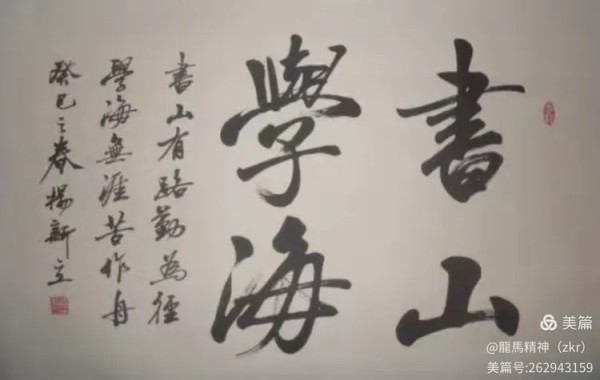 書山
學海
書山有路勤為徑
學海無涯苦作舟
癸巳之春楊新立
美篇
@龍馬精神（zkr）
美篇号:262943159